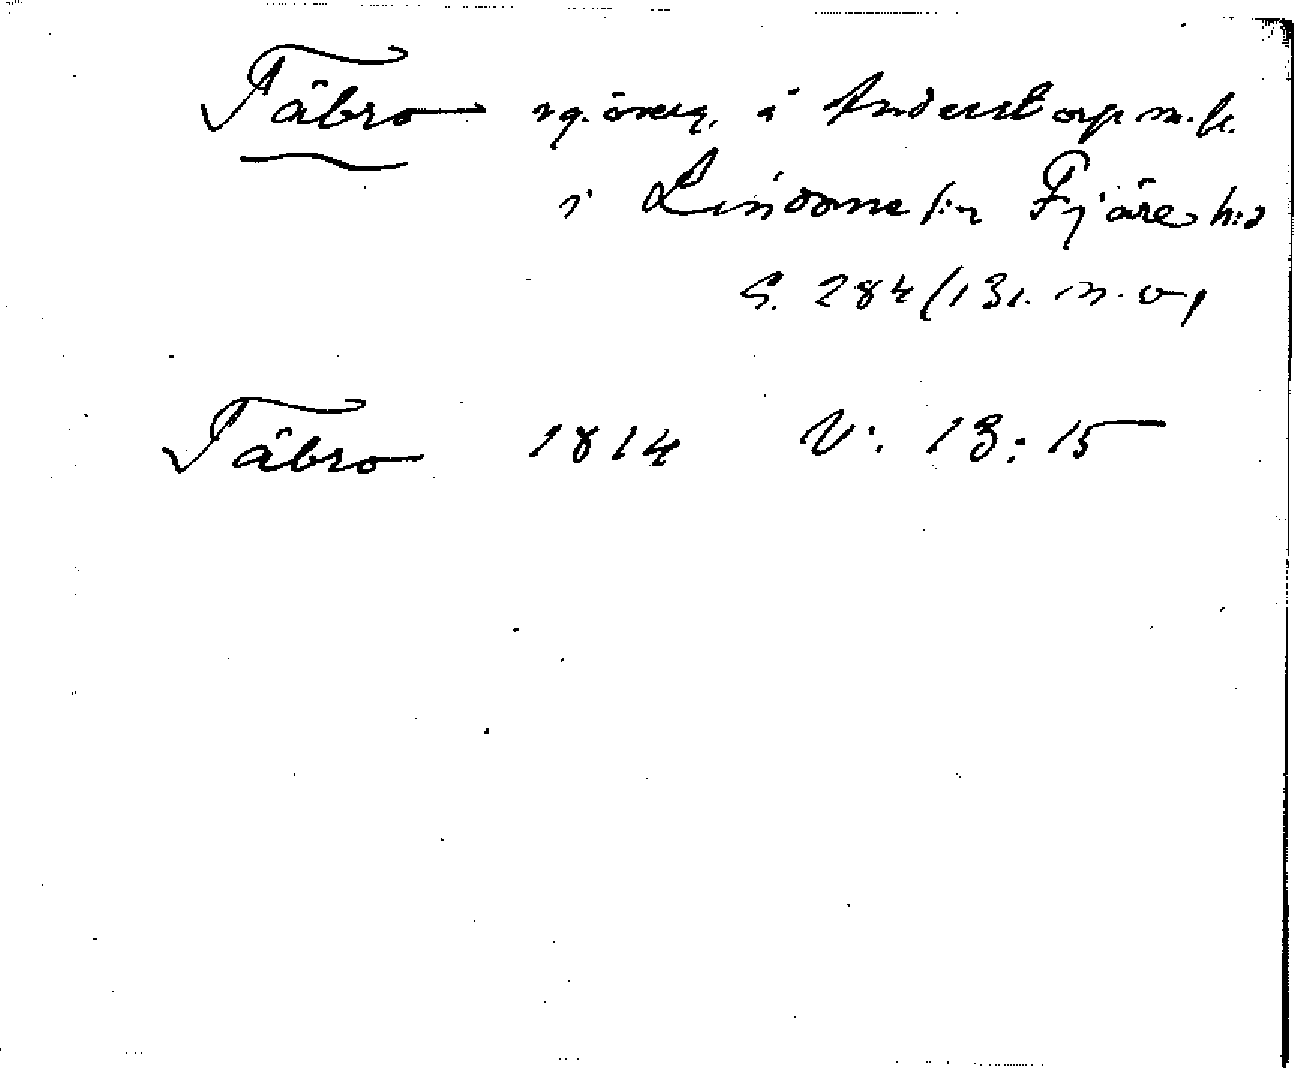 Täbro äg. överg. å Anderstorp m.fl.
i Lindome s:n Fjäre h:d
S. 284/131. m.
Täbro 1814 V: 13:15